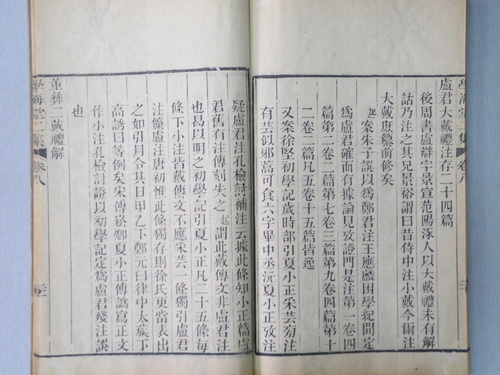 學海堂二集 卷八
盧君大戴禮注存二十四篇
後周書盧辯字景宣范陽涿人以大戴禮未有解
詁乃注之其兄景裕謂曰昔侍中注小戴今爾注
大戴庶纂前修矣
案朱子誤以爲鄭君注王應麟困學紀聞定
爲盧君確而有據論見攷證門是注第一卷四
篇第二卷三篇第七卷三篇第九卷四篇第十
二卷二篇凡五卷十五篇皆逸
又案徐堅初學記歲時部引夏小正采芸注
有芸似邪蒿可食六字畢中丞沅夏小正攷注
疑盧君注孔檢討補注云據此條知小正篇盧
君舊有注傳刻失之謂此戴傳文非盧君注
也曷以明之初學記引夏小正凡二十五條每
條下小注皆戴傳文不應采芸一條獨引盧君
注盧注唐初惟此條獨存否則徐氏更當表出
之如引月令其日甲乙下鄭元曰律中太蔟下
高誘曰等例矣宋傅崧卿夏小正傳譌寫正文
作小注孔檢討遂以初學記定爲盧君殘注誤
也
董彝二戴禮解
學海堂二集 卷八